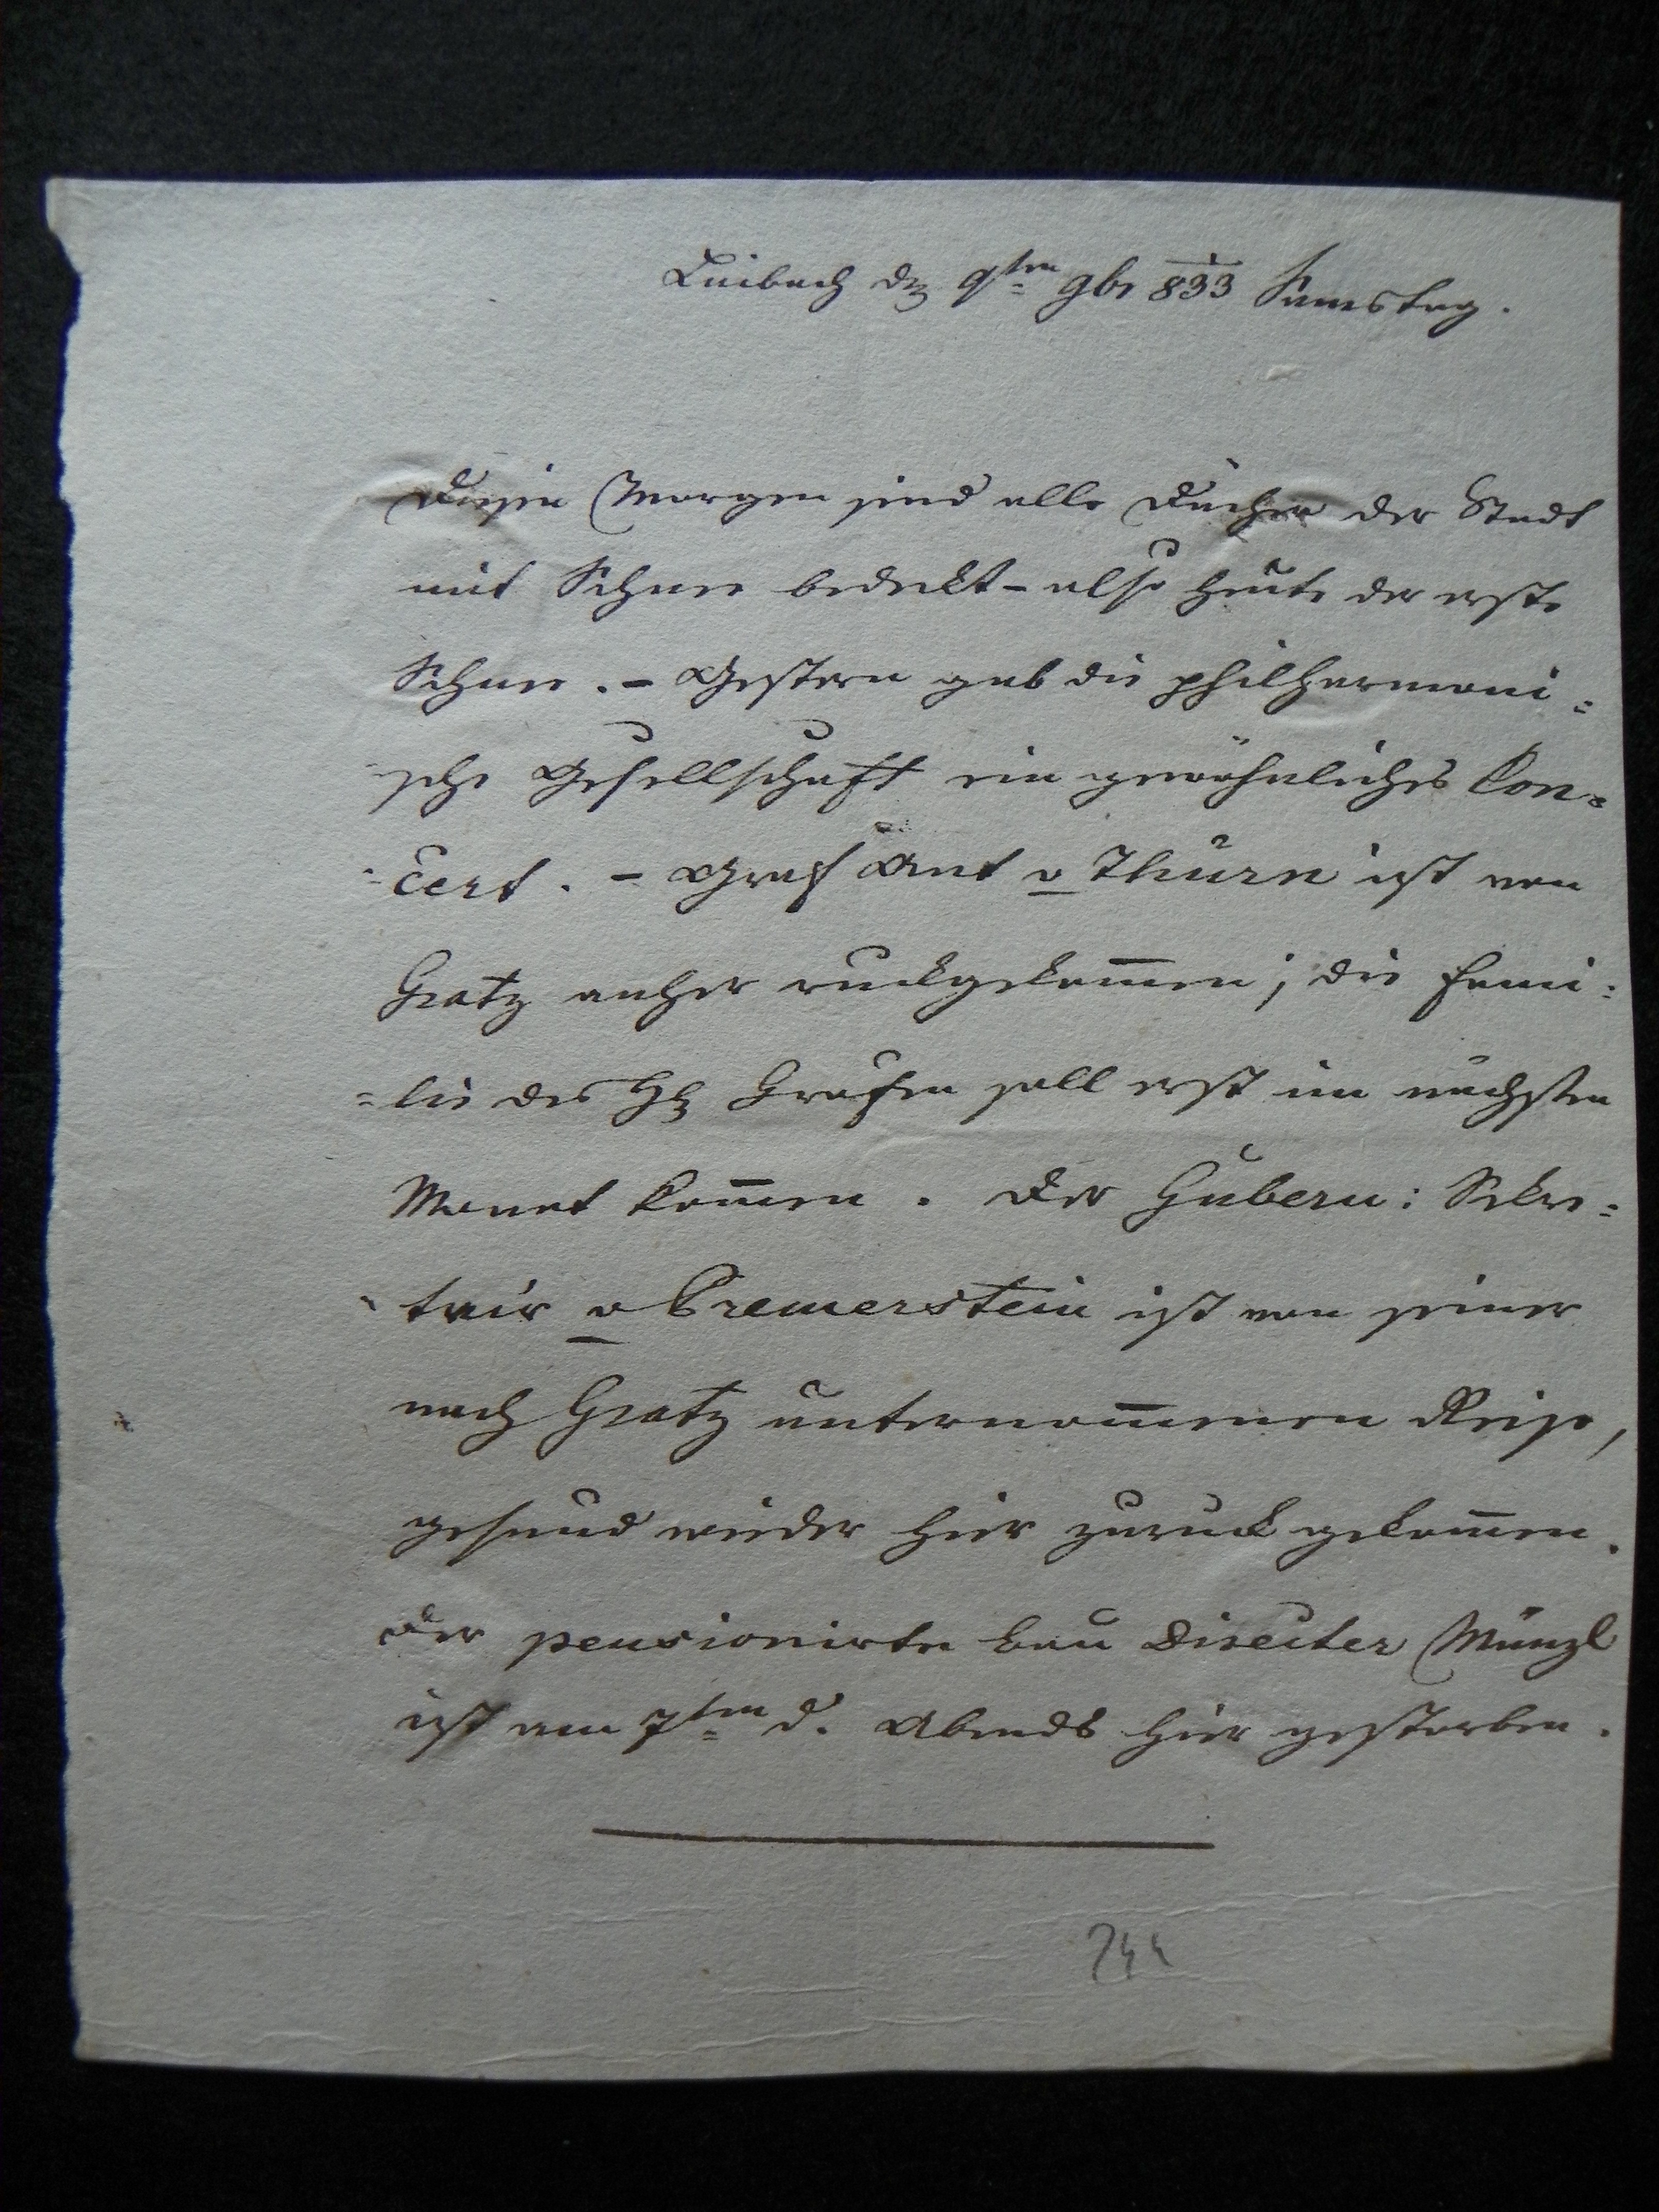 Laibach den 9ten 9br 833 Samstag.
Diesen Morgen sind alle Dächer der Stadt
mit Schnee bedekt - also heute der erste
Schnee. - Gestern gab die philharmoni=
sche Gesellschaft ein gewöhnliches Con=
=cert. - Graf Ant v Thurn ist von
Gratz anher ruckgekom̄en; die Fami=
=lie des H. Grafen soll erst im nächsten
Monat kom̄en. Der Gubern: Sekre=
=tair v Premerstein ist von seiner
nach Gratz unternom̄menen Reise,
gesund wieder hier zuruck gekom̄en.
Der pensionirte Bau Director Münzl
ist am 7ten d. Abends hier gestorben.